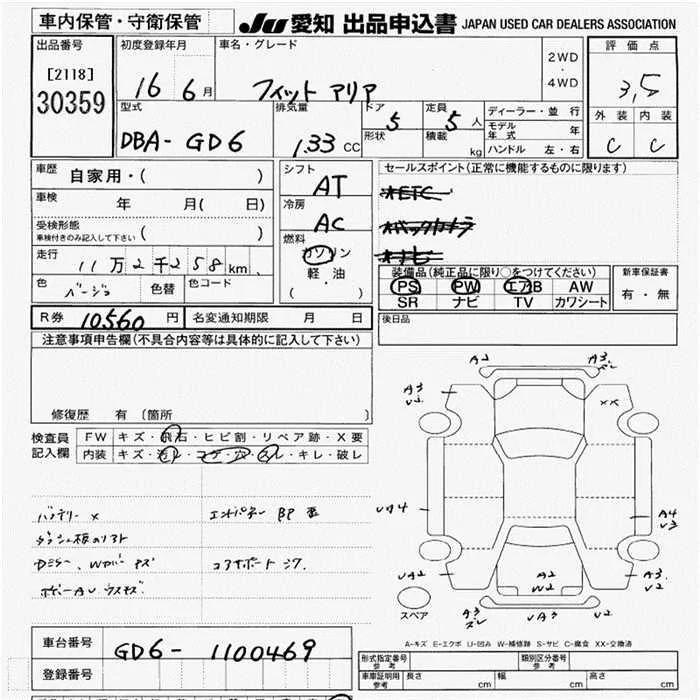 車内保管・守衛保管
JU 愛知 出品申込書 JAPAN USED CAR DEALERS ASSOCIATION
出品番号
[2118]
30359
初度登録年月
16 6月
車名・グレード
フィット アリア
2WD
・
4WD
評価点
3.5
外装 内装
C C
型式
DBA-GD6
排気量
1.33 CC
ドア 5
形状
定員 5人
積載 kg
ディーラー・並行
モデル年式 年
ハンドル 左・右
車歴 自家用・( )
車検 年 月( 日)
受検形態
車検付きのみ記入して下さい ( )
走行 11万2千258km
色 ベージュ 色替 色コード
シフト
AT
冷房
AC
燃料
ガソリン
軽・油
( )
セールスポイント(正常に機能するものに限ります)
*ETC
*バックカメラ
*ナビ
装備品(純品に限り○をつけてください)
PS PW エアB AW
SR ナビ TV カワシート
新車保証書
有・無
R券 10560円 名変通知期限 月 日
後日品
注意事項申告欄(不具合内容等は具体的に記入して下さい)
修復歴 有〔箇所 〕
検査員
記入欄
FW キズ・飛石・ヒビ割・リペア跡・X要
内装 キズ・汚レ・コゲ・穴・スレ・キレ・破レ
バッテリー ×
エンドパネル BP
ダッシュ板のリフト
コアサポート
ボデーAUウスキズ
A2
A3
A3
XX
UA4
A4
U3
UA2
A2
W2
A3
U2
A3
スレ
UA3
U2
スペア
A-キズ E-エクボ U-凹み W-補修跡 S-サビ C-腐食 XX-交換済
車台番号 GD6-1100469
登録番号
形式指定番号
参考
類別区分番号
参考
車庫証明用
参考
長さ cm 幅 cm 高さ cm